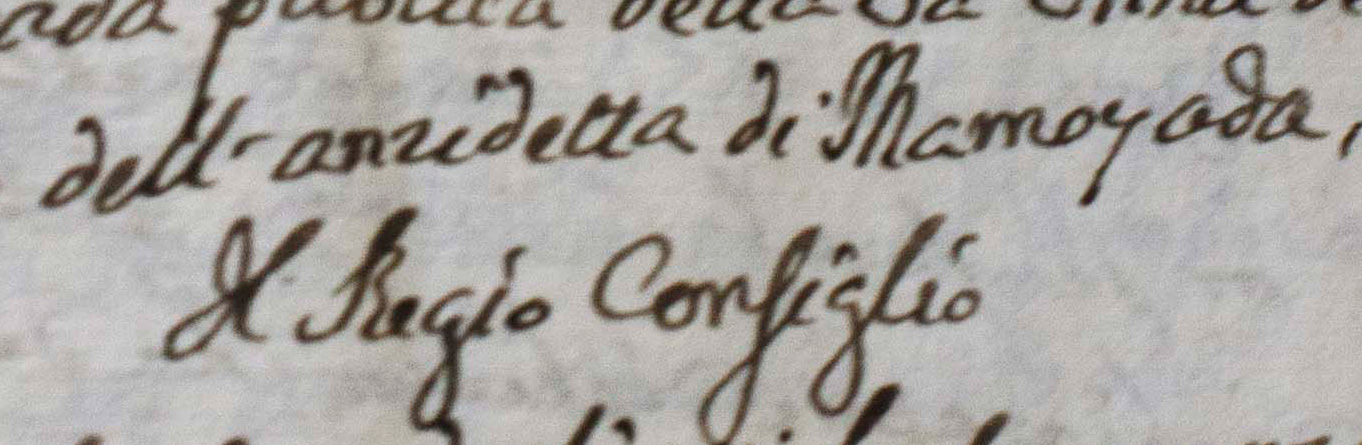 publica della
dell'anzidetta di Mamoyada,
Il Regio Consiglio